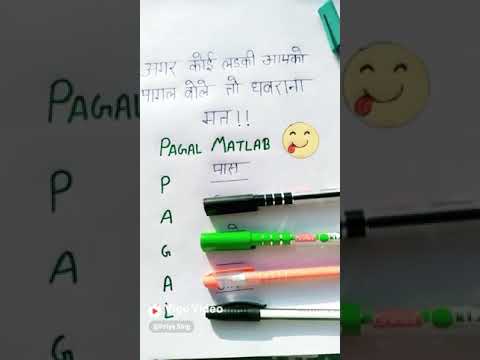 अगर कोई लडकी आपको
पागल बोले तो घबराना
मत!!
PAGAL MATLAB
P पास
A
G
A
L
Video
@Priya Sing
PAGAL
P
A
G